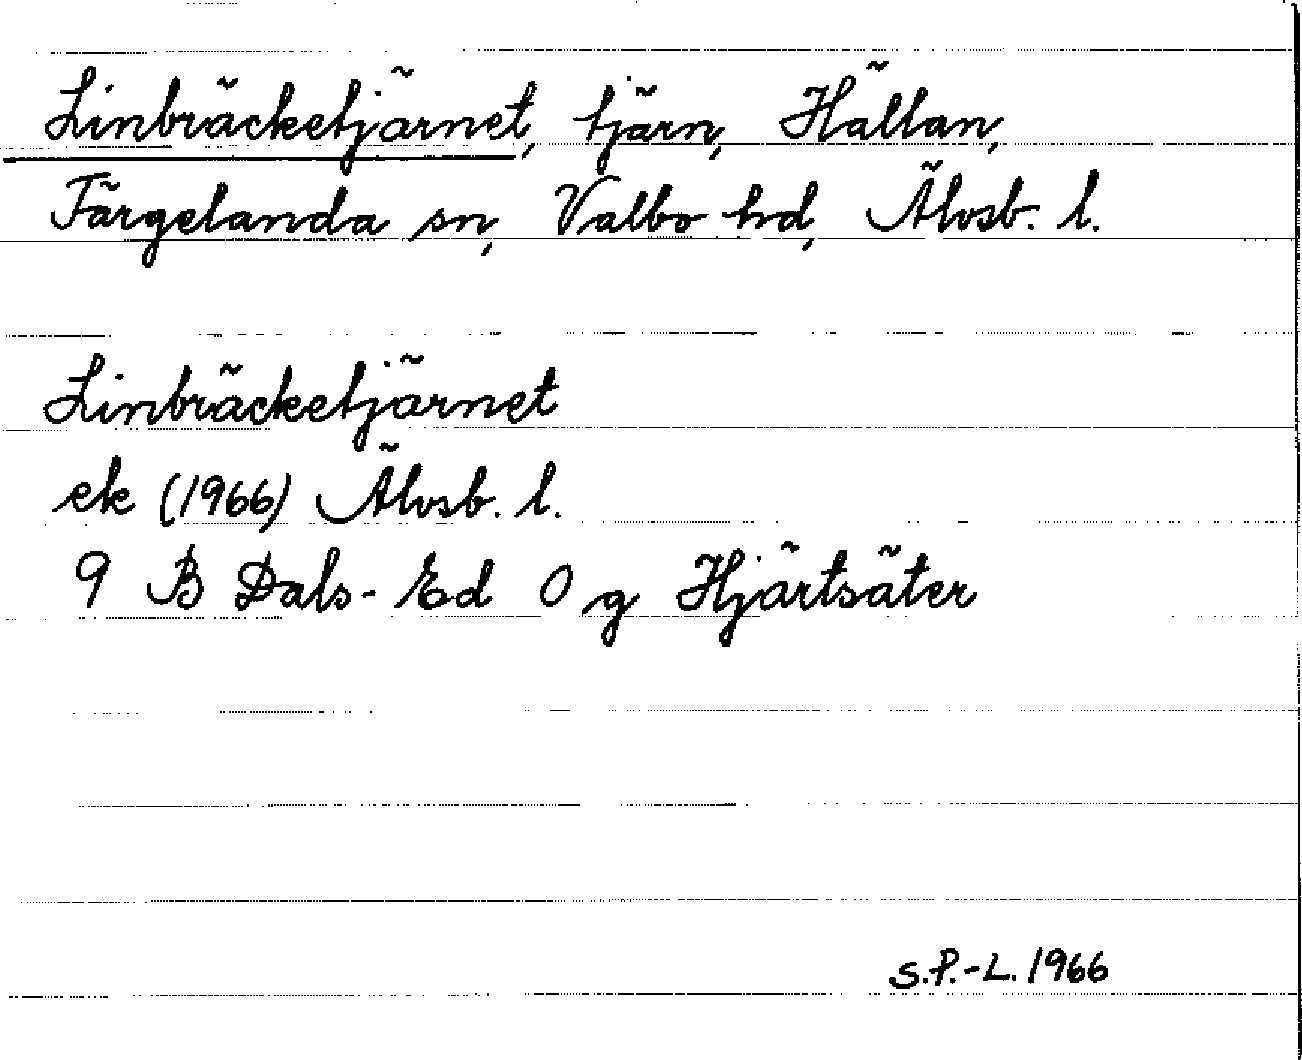 Linbräcketjärnet, tjärn, Hällan,
Färgelanda sn, Valbo hd, Älvsb. l.
Linbräcketjärnet
ek (1966) Älvsb. l.
9 B Dals-Ed 0 g Hjärtsäter
S.P.-L. 1966